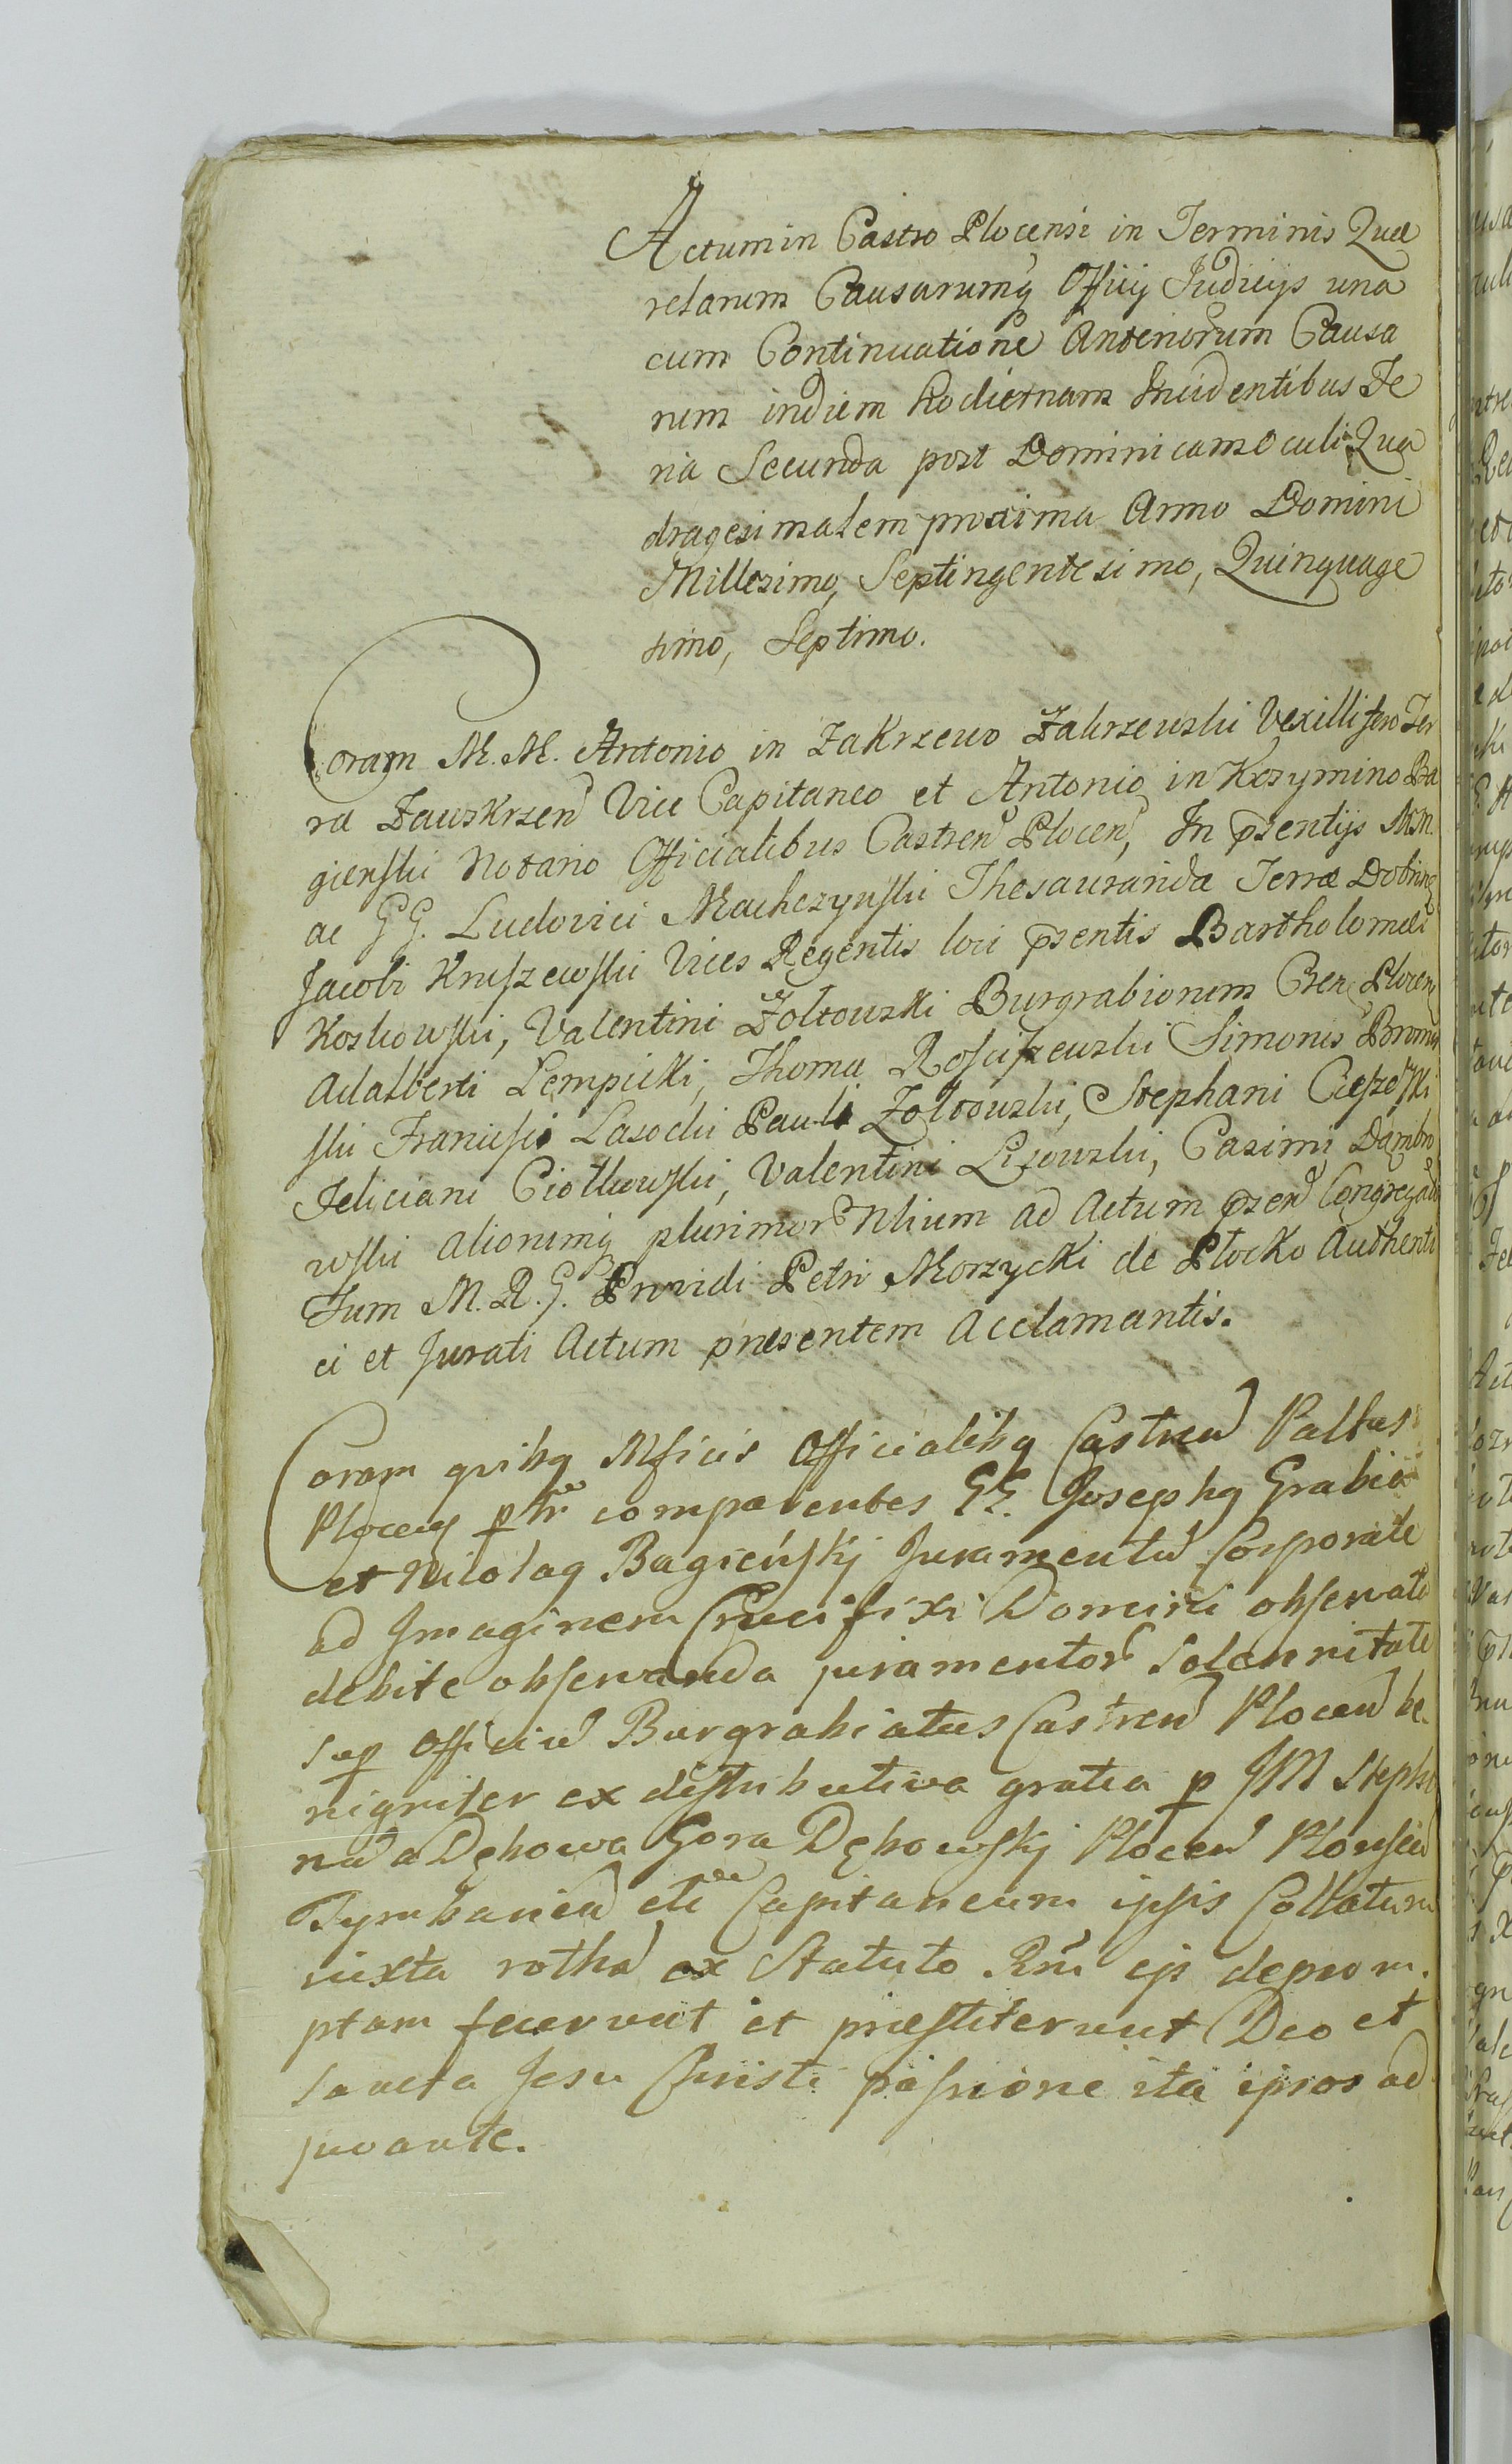 Actum in Castro Plocensi in Terminis Quæ
relarum Causarumq Officij Judicijs una
cum Continuatione Anteriorum Causa
rum in diem hodiernam Incidentibus Fe
ria Secunda post Dominicam Oculi Qua
dragesimalem proxima Anno Domini
Millesimo, Septingentesimo, Quinquage
simo, Septimo.
Coram M. M. Antonio in Zakrzewo Zakrzewski Vexillifero Ter
ræ Zawskrzen Vice Capitaneo et Antonio in Kozymino Ba
gienski Notario Officialibus Castren Plocen, In psentijs MM.
ac GG. Ludovici Machczynski Thesauraridæ Terræ Dobrin
Jacobi Kruszewski Vices Regentis loci psentis Bartholomei
Koskowski, Valentini Zoltowski Burgrabiorum Plocen
Adalberti Lempicki, Thoma Rosciszewski Simonis Bromi
ski Francisci Lasocki Pauli Zoltowski, Stephani Cieszeski
Feliciani Ciolkowski, Valentini Lisowski, Casimi Dąmbro
wski aliorumq plurimor Nlium ad Actum psen Congregator
Tum M. R. G. Providi Petri Morzycki de Plocko Authenti
ci et Jurati Actum præsentem Acclamantis.
Coram qvibq Mficis Officialibq Castren Pallus
Plocen pltr comparentes GG. Josephq Grabia
et Nicolaq Bagieńskj Juramentu Corporale
ad Imaginem Crucifixi Domini observata
debite observanda juramentor Solennitate
sup Officiu Burgrabiatus Castren Plocen be
nigniter ex distributiva gratia p JM Stepha
nu a Dębowa Gora Dębowskj Plocen Plonscen
Bymbanien etc Capitaneum ipsis Collatum
iuxta rotha ex Statuto Rni ejs deprom
ptam fecerunt et præstiterunt Deo et
Sancta Jesu Christi passione ita ipsos ad
juvante.